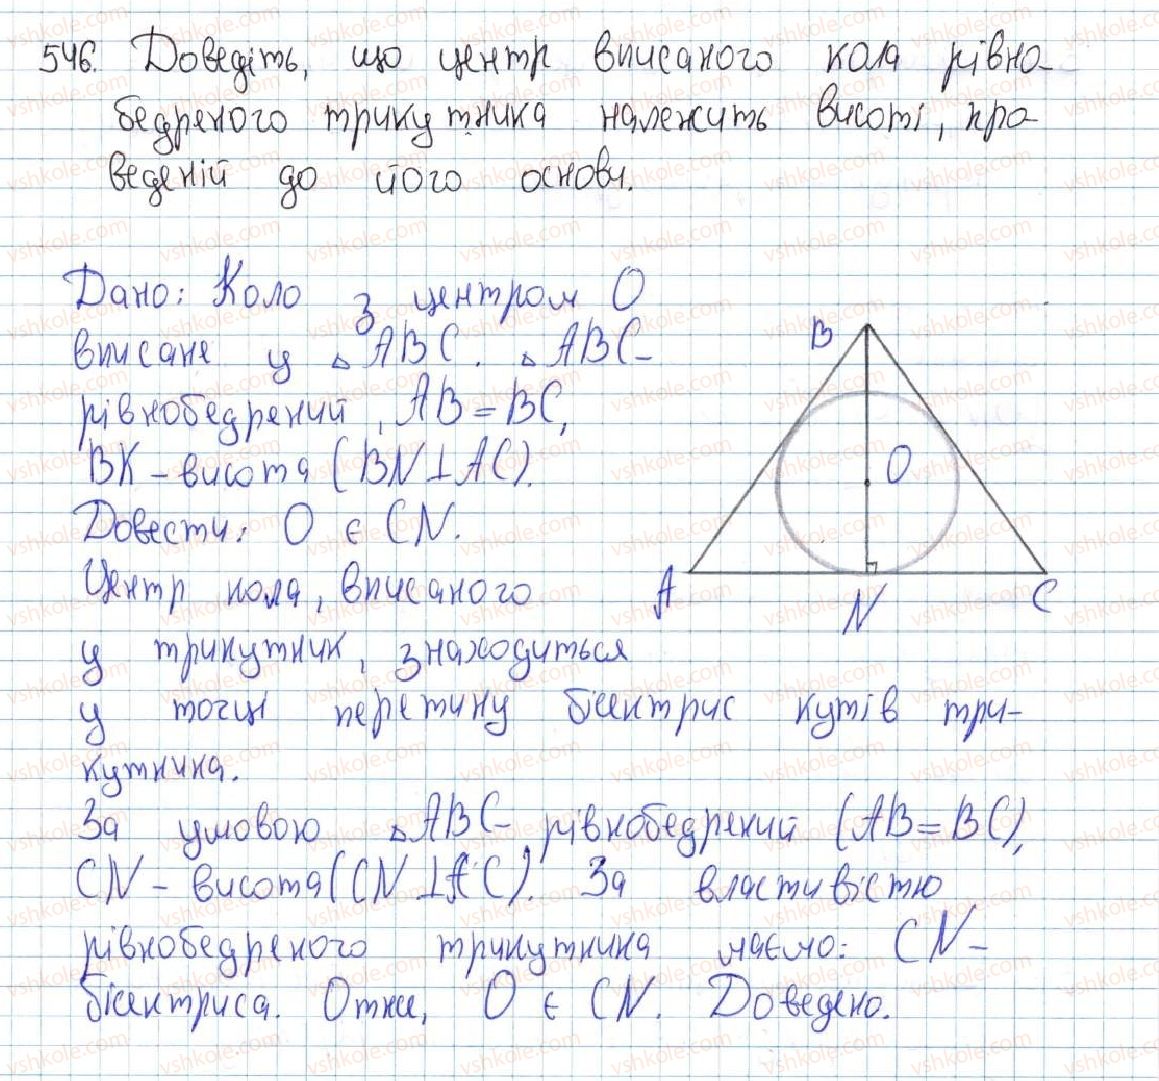 546. Доведіть, що центр вписаного кола рівно-
бедреного трикутника належить висоті, про-
веденій до його основи.
Дано: Коло з центром O
вписане у △ABC. △ABC –
рівнобедрений, AB = BC,
BK – висота (BN ⊥ AC).
Довести: O є CN.
Центр кола, вписаного
у трикутник, знаходиться
у точці перетину бісектрис кутів три-
кутника.
За умовою △ABC – рівнобедрений (AB = BC),
CN – висота (CN ⊥ AC). За властивістю
рівнобедреного трикутника маємо: CN –
бісектриса. Отже, O є CN. Доведено.
B
O
A
N
C
vshkole.com